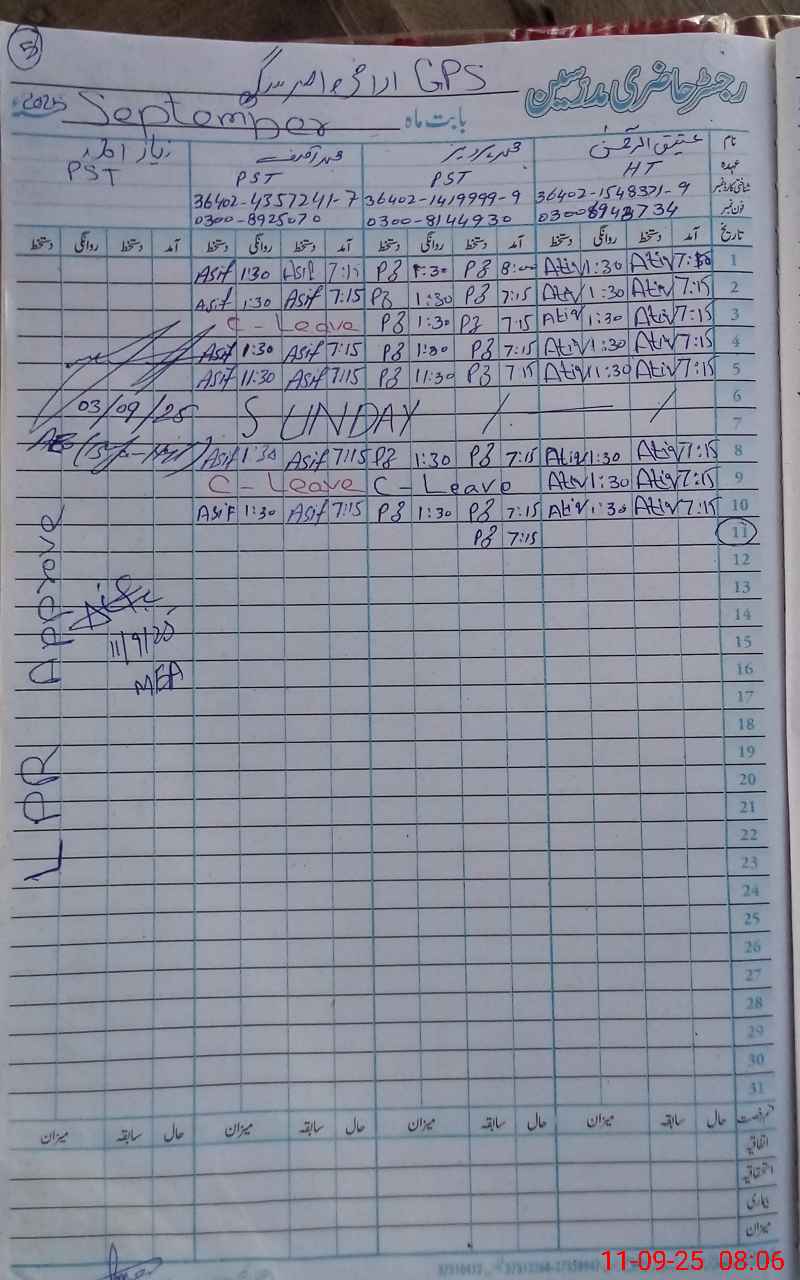 5
رجسٹر حاضری مدرسین GPS
بابت ماہ September 2025
نام عتیق الرحمن
عہدہ HT PST PST PST
شناختی کارڈ نمبر 36402-1548371-9 36402-1419999-9 36402-4357241-7
فون نمبر 0300-8144930 0300-8925070
تاریخ آمد دستخط روانگی دستخط آمد دستخط روانگی دستخط آمد دستخط روانگی دستخط آمد دستخط روانگی دستخط
Asif 1:30 Asif 7:15 PZ 1:30 PZ 8:00 Atiq 1:30 Atiq 1
Asif 1:30 Asif 7:15 PZ 1:30 PZ 7:15 Atiq 1:30 Atiq 7:15 2
C - Leave PZ 1:30 PZ 7:15 Atiq 1:30 Atiq 7:15 3
Asif 1:30 Asif 7:15 PZ 1:30 PZ 7:15 Atiq 1:30 Atiq 7:15 4
Asif 11:30 Asif 7:15 PZ 11:30 PZ 7:15 Atiq 1:30 Atiq 7:15 5
6
03/09/25 SUNDAY 7
Asif 1:30 Asif 7:15 PZ 1:30 PZ 7:15 Atiq 1:30 Atiq 7:15 8
C - Leave C - Leave Atiq 1:30 Atiq 7:15 9
Asif 1:30 Asif 7:15 PZ 1:30 PZ 7:15 Atiq 1:30 Atiq 7:15 10
PZ 7:15 11
12
13
14
15
16
17
18
19
20
21
22
23
24
25
26
27
28
29
30
31
LPR Approve
11/9/25
MEA
حال سابقہ میزان حال سابقہ میزان حال سابقہ میزان حال سابقہ میزان
اتفاقیہ
استحقاقیہ
بیماری
میزان
11-09-25 08:06